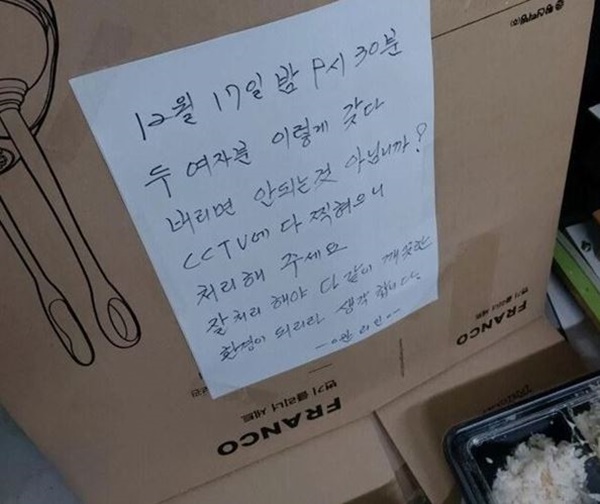 12월 17일 밤 P시 30분
두 여자분 이렇게 갖다
버리면 안되는것 아닙니까?
CCTV에 다 찍혔으니
처리해 주세요
잘처리 해야 다 같이 깨끗한
환경이 되리라 생각 합니다.
변기 클리너 세트
FRANCO
변기 클리너 세트
FRANCO